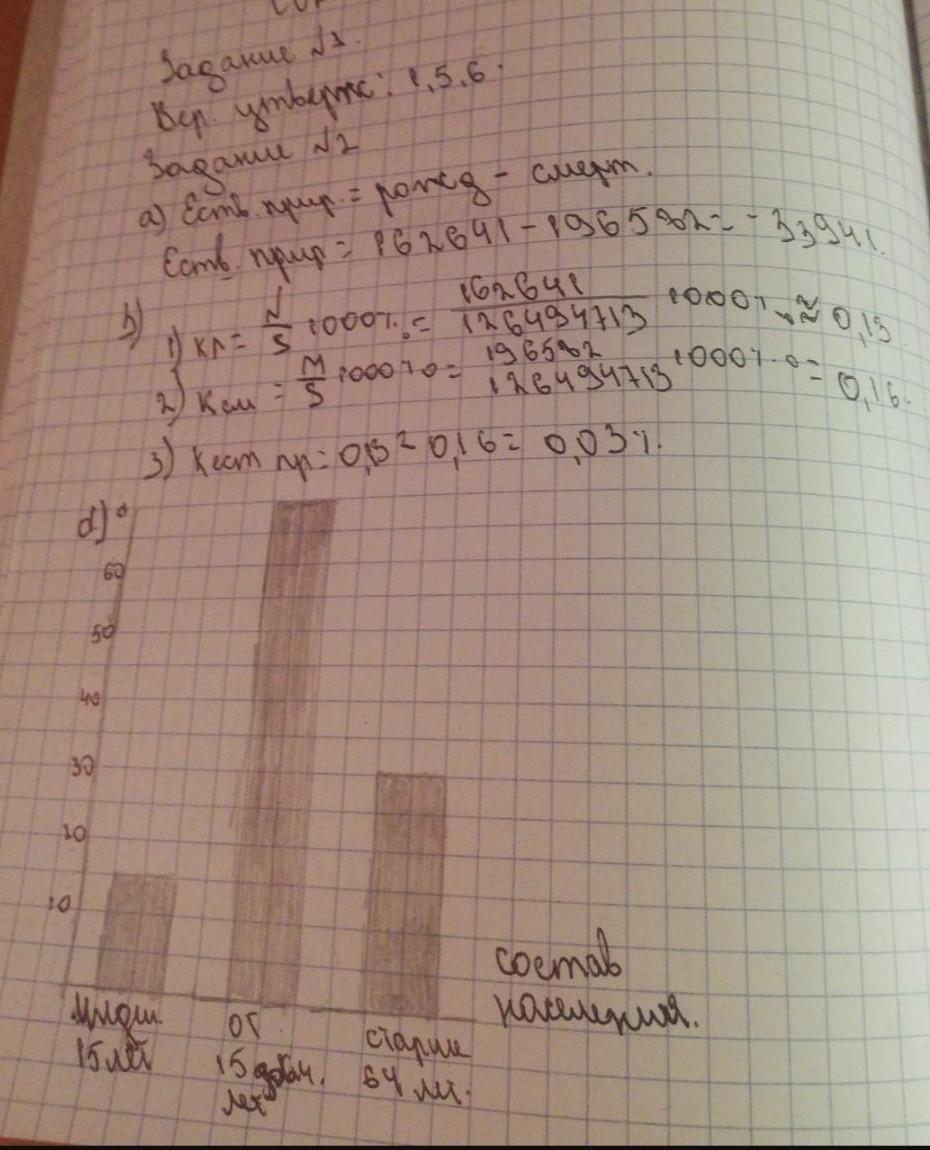 Задание №1.
Вер. утверж: 1,5,6.
Задание №2
а) Еств. прир. = рожд - смерт.
Еств. прир = 162641 - 196582 = -33941.
b)
1) Кр = N/S · 1000‰ = 162641/126494713 · 1000‰ ≈ 0,13
2) Ксм = M/S · 1000‰ = 196582/126494713 · 1000‰ = 0,16.
3) Кест пр = 0,13 - 0,16 = 0,03%.
d)
60
50
40
30
20
10
состав
населения.
младш.
15 лет
от
15 до 64
лет
старше
64 лет.